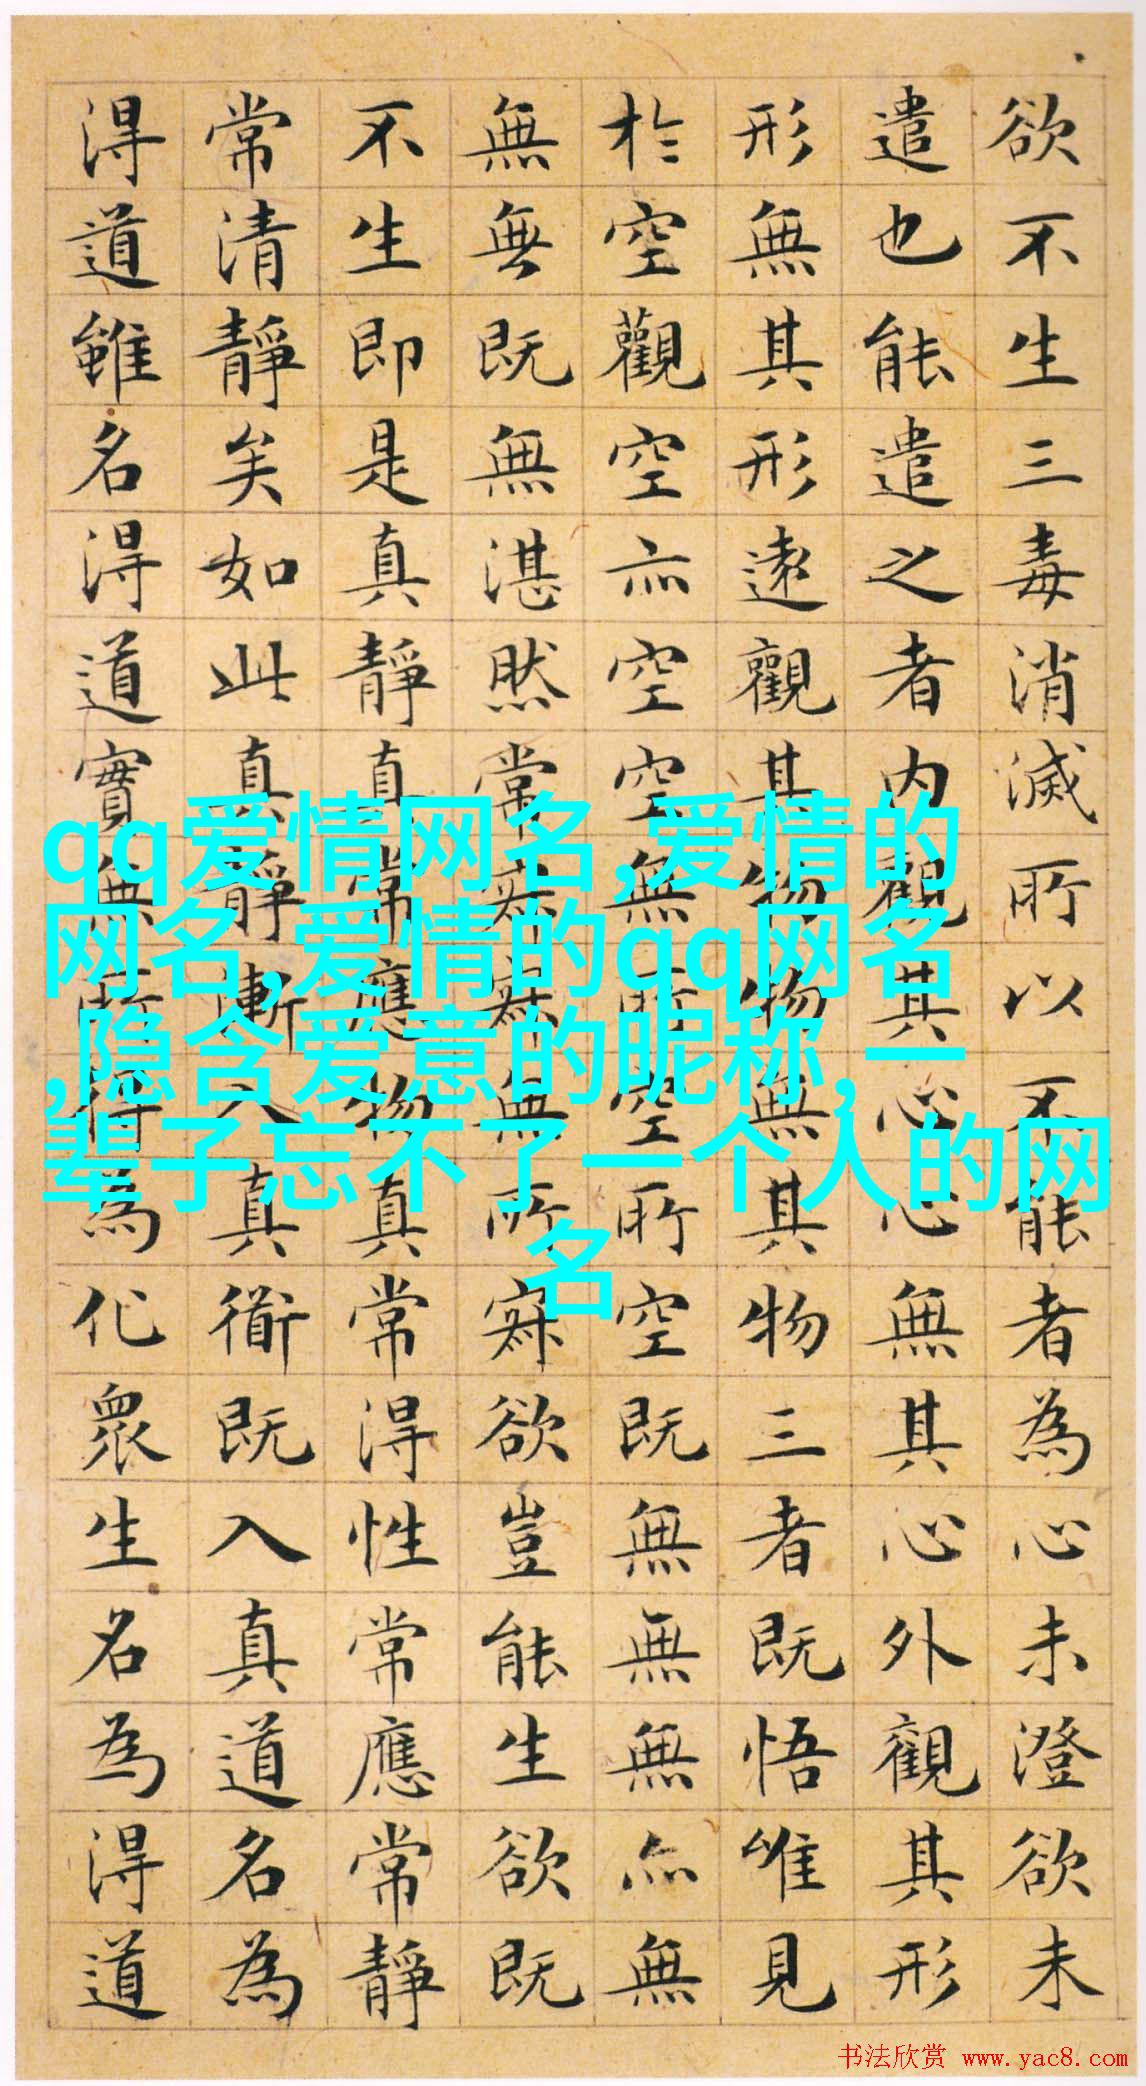 欲不生三毒消滅所以不能者為心未澄欲未
遣也能遣之者内觀其心心無其心外觀其形
形無其形遠觀其物物無其物三者既悟唯見
於空觀空亦空空無所空所空既無無無亦無
無無既無湛然常寂寂無所寂欲豈能生欲既
不生即是真靜真常應物真常得性常應常靜
常清靜矣如此真靜漸入真衜既入真道名為
得道雖名得道實無所得為化眾生名為得道
qq爱情网名,爱情的
网名,爱情的qq网名
,隐含爱意的昵称,一
辈子忘不了一个人的网
名
书法欣赏 www.yac8.com